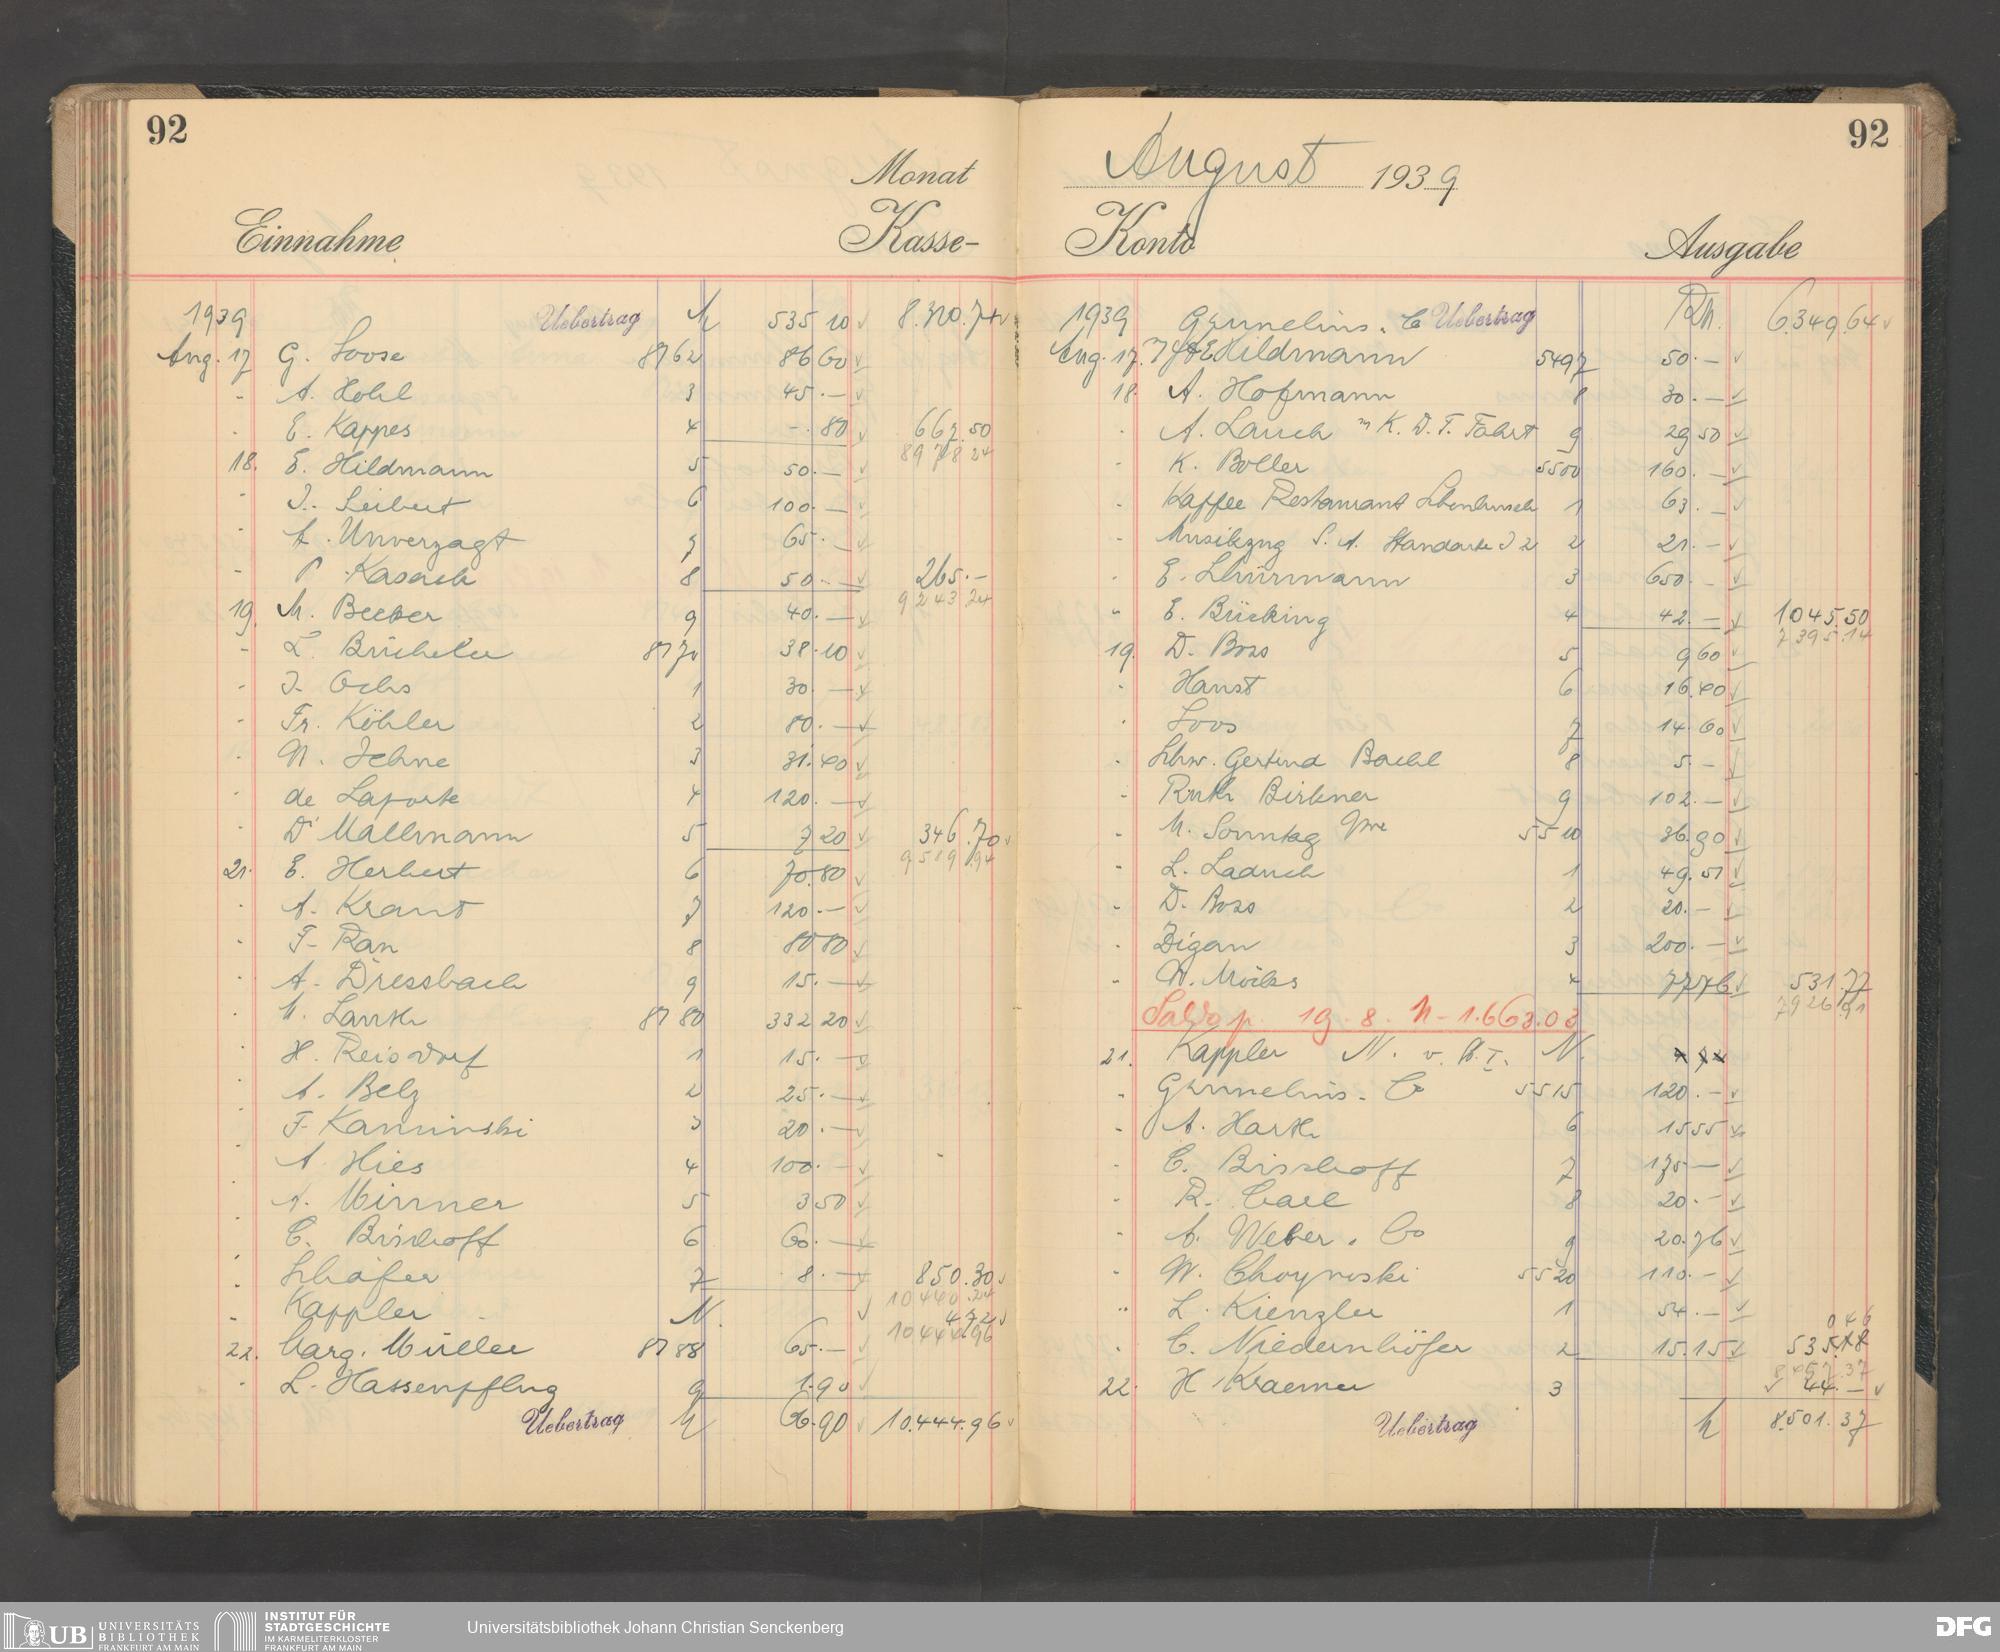 92
Monat
Einnahme Kasse-
1939 Uebertrag M 535 10 8.310.74
Aug. 17 G. Loose 8762 86 60
- A. Hohl 3 45.—
- E. Kappes 4 -.80 667.50
8978 24
18. E. Hildmann 5 50.—
- J. Leibert 6 100.—
- A. Unverzagt 7 65.—
- P. Kasack 8 50.— 265.—
9243.24
19. M. Becker 9 40.—
- 8770 38.10
- J. Ochs 1 30.—
- Fr. Köhler 2 80.—
- N. Jehne 3 31.40
- de Laporte 4 120.—
- Dr Mallmann 5 7 20 346.70
9589.94
21. E. Herbert 6 70.80
- A. Kraut 7 120.—
- F. Rau 8 80 80
- A. Dressbach 9 15.—
8780 332 20
- H. Reisdorf 1 15.—
- A. Belz 2 25.—
- F. Kaminski 3 20.—
- A. Hies 4 100.—
- A. Minner 5 3 50
- C. Bischoff 6 60.—
- Schäfer 7 8.— 850.30
10440.24
- Kappler N. 4 72
10444.96
22. Marg. Müller 8788 65.—
- L. Hassenpflug 9 1.90
Uebertrag M 66.90 10.444.96
92
August 1939
Konto Ausgabe
1939 Uebertrag RM. 6.349.64
Aug. 17. E Hildmann 5497 50.—
18. A. Hofmann 8 30.—
- A. Lauch K. D. F. Fahrt 9 29 50
- K. Boller 5500 160.—
- Kaffee Restaurant 1 63.—
- Musikzug S. A. Standarte 2 21.—
- E. Schürmann 3 650.—
- E. Bücking 4 42.— 1045.50
7395.14
19. D. Boss 5 9 60
- Hanst 6 16.40
- Loos 7 14.60
- Schw. Gertrud Bachl 8 5.—
- Ruth Birkner 9 102.—
- M. Sonntag 5510 36.90
- L. Laduch 1 49.51
- D. Boss 2 20.—
- Zigan 3 200.—
- 4 77 76 531.77
7926.91
Saldo p. 19. 8. M - 1.663.03
21. Kappler N. v. N.
- 5515 120.—
- A. Harth 6 15 55
- C. Bischoff 7 175.—
- R. Carl 8 20.—
- A. Weber & Co 9 20.76
- W. Choynoski 5520 110.—
- L. Kienzler 1 54.—
- C. Niedernhöfer 2 15.15 535
046
8457.37
22. H. Kraemer 3 44.—
Uebertrag M 8.501.37
UB UNIVERSITÄTS
BIBLIOTHEK
FRANKFURT AM MAIN
INSTITUT FÜR
STADTGESCHICHTE
IM KARMELITERKLOSTER
FRANKFURT AM MAIN
Universitätsbibliothek Johann Christian Senckenberg
DFG